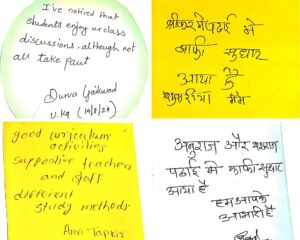 I've noticed that
students enjoy ur class
discussions, although not
all take part
Durva Gaikwad
U.kg (14/8/24)
श्रीकर में पढाई में
काफी सुधार
आया है
मॅम
good curriculum
activities
supportive teachers
and staff
different
study methods
Anvi Tapkir
अनुराज और
पढाई में काफी सुधार
आया है
हम आपके
आभारी है